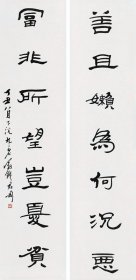 善且嬾為何況惡
富非所望豈憂貧